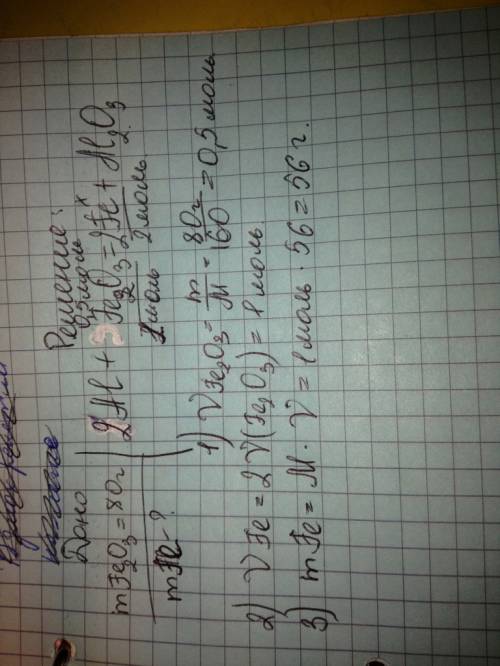 Дано
Решение:
mFe2O3=80г
0,5моль x
2Al + Fe2O3 = 2Fe + Al2O3
1моль 2моль
mFe-?
1) νFe2O3 = m/M = 80г/160 = 0,5 моль
2) νFe = 2ν(Fe2O3) = 1 моль
3) mFe = M·ν = 1 моль · 56 = 56 г.